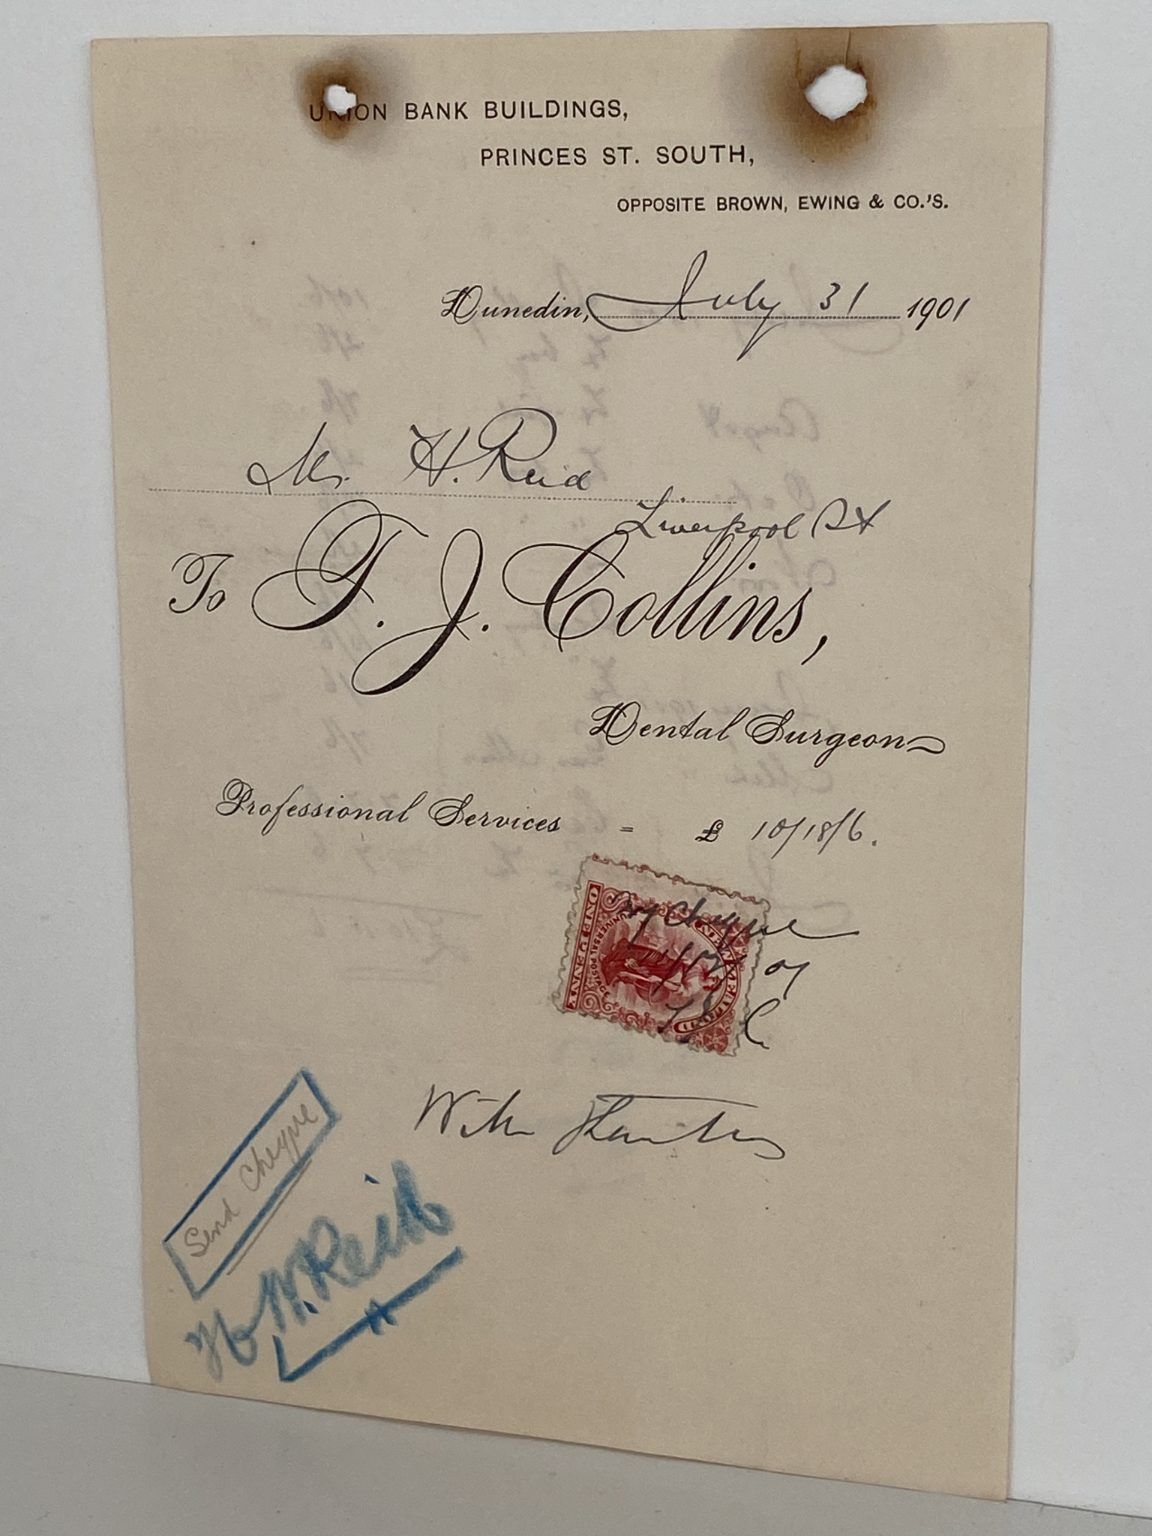 UNION BANK BUILDINGS,
PRINCES ST. SOUTH,
OPPOSITE BROWN, EWING & CO.'S.
Dunedin, July 31 1901
Mr. H. Reid
Liverpool St
To T. J. Collins,
Dental Surgeon
Professional Services = £ 10/18/6.
By Cheque
ONE PENNY
UNIVERSAL POSTAGE
With Thanks
Send Cheque
W. Reid